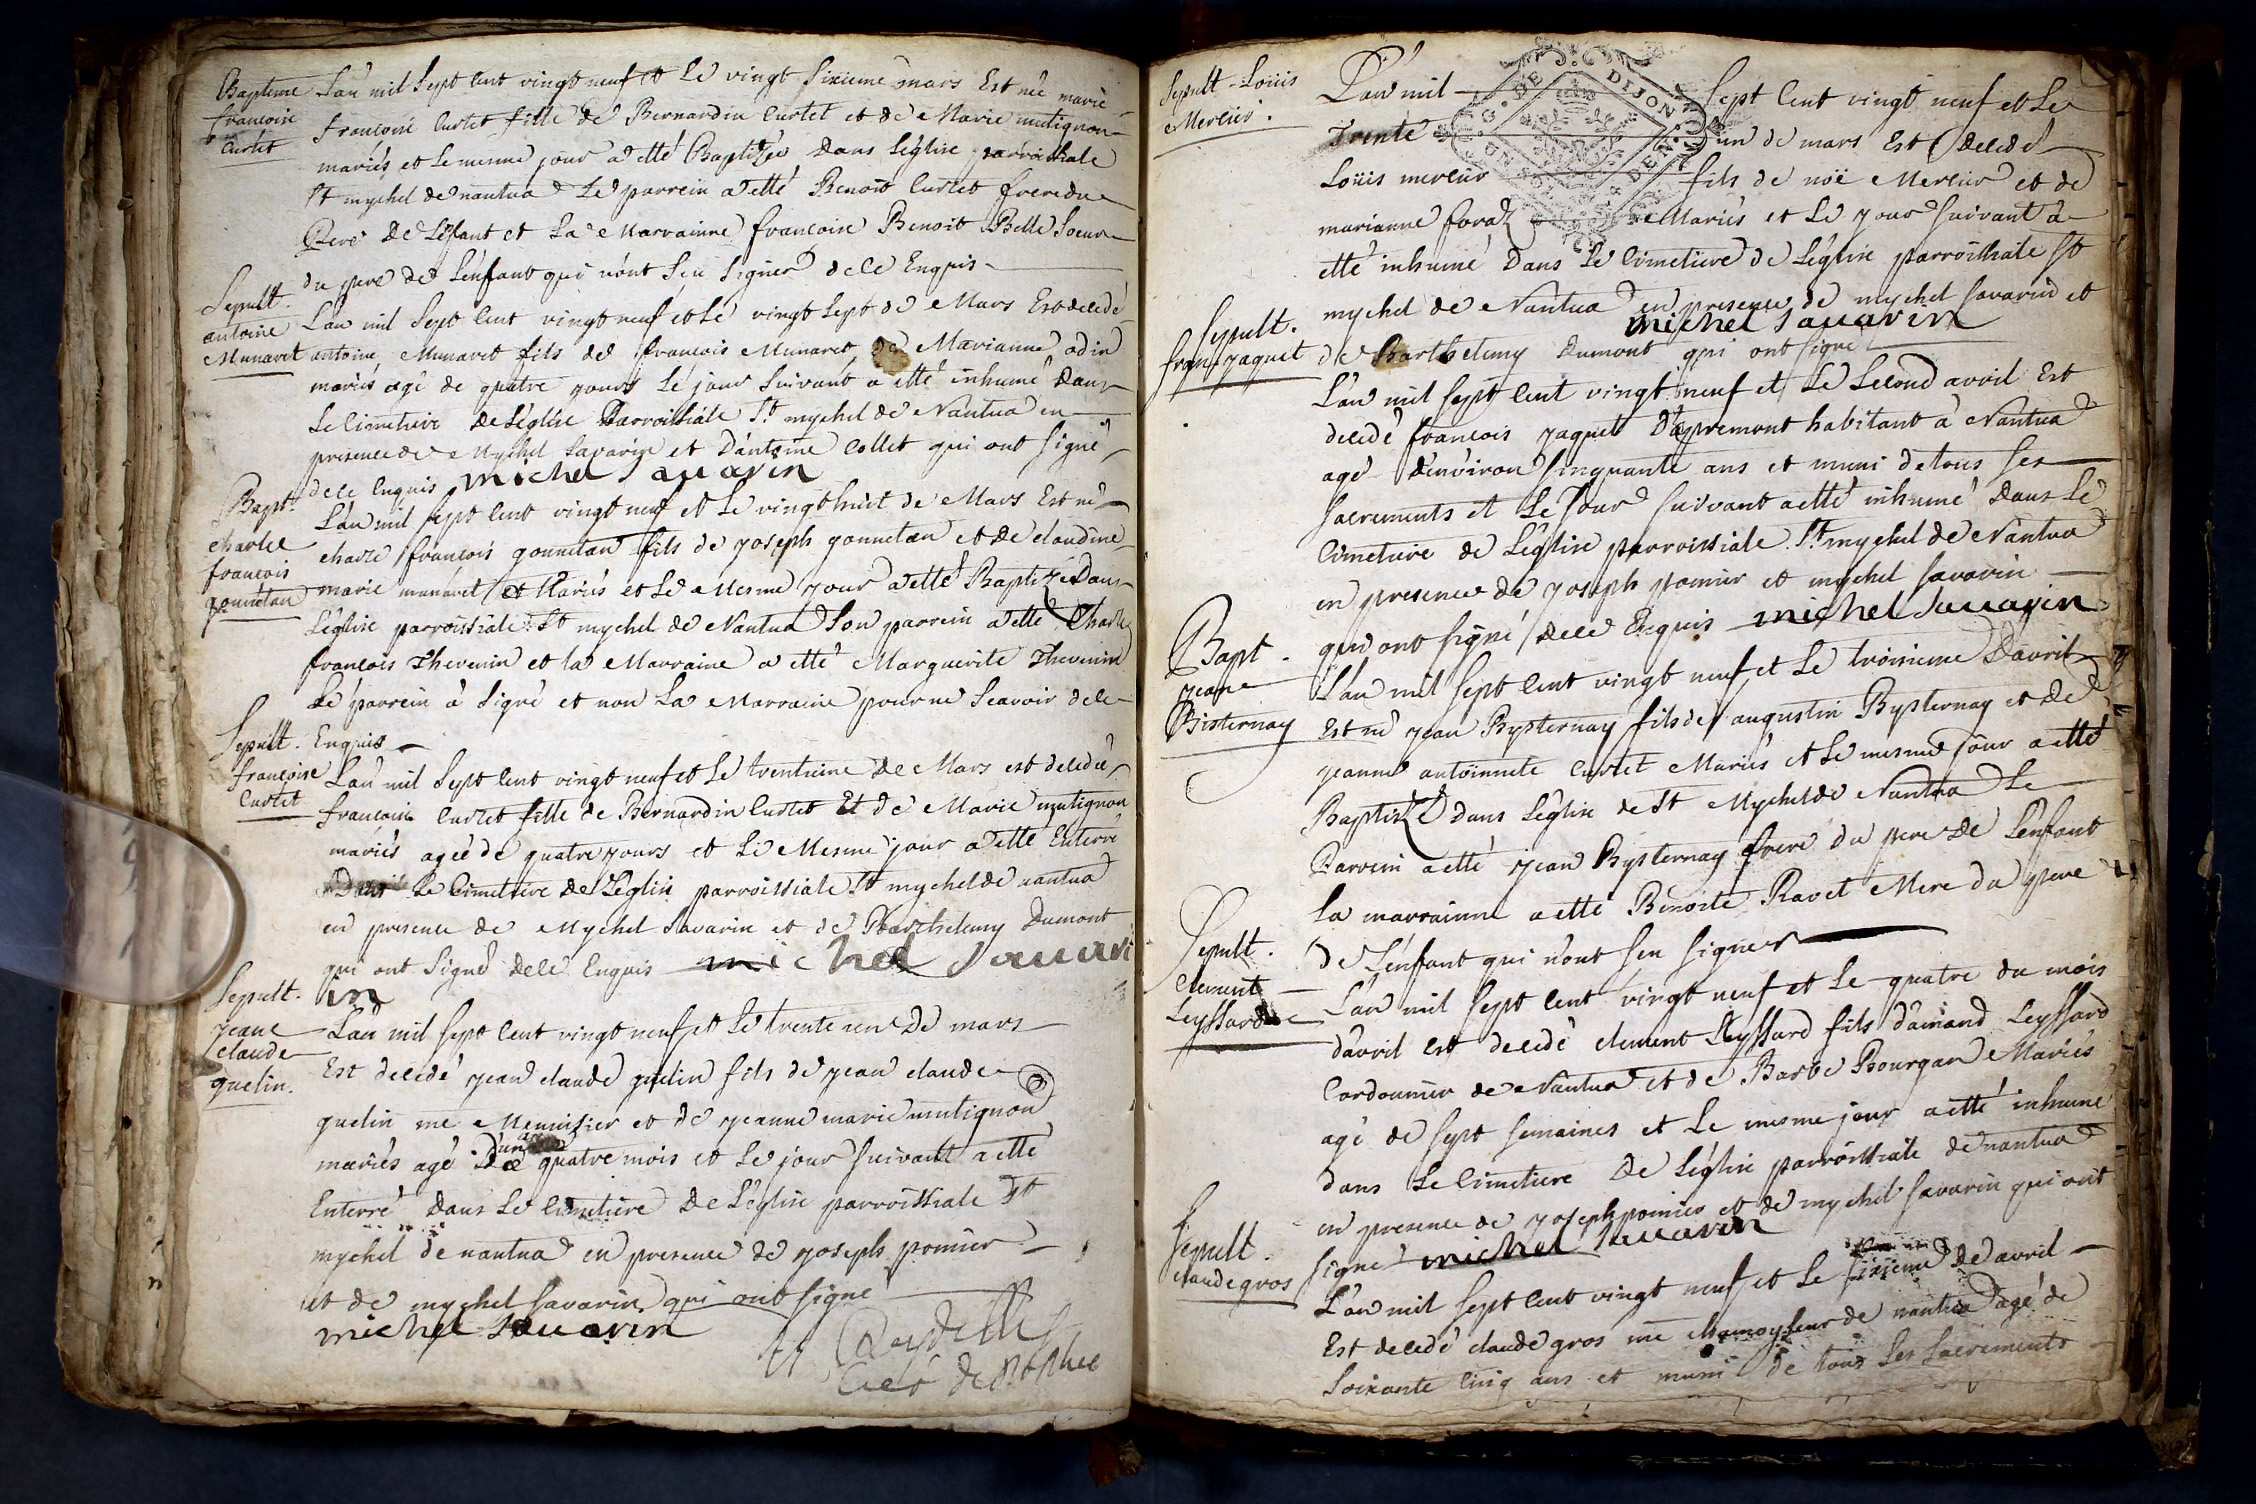 Bapteme
francoise
Curtet
L'an mil sept cent vingt neuf et le vingt sixieme mars Est née marie
francoise Curtet fille de Bernardin Curtet et de Marie mutignon
mariés et le mesme jour a etté Baptizée Dans l'église parroissiale
St mychel de nantua Le parrein a etté Benoit Curtet frere du
Pere De L'éfant et La Marrainne francoise Benoit Belle Soeur
du pere de L'enfant qui n'ont Sceu Signer de ce Enquis
Sepult.
antoine
Munaret
L'an mil Sept Cent vingt neuf et Le vingt Sept de Mars Est decedé
antoine Munaret fils de francois Munaret de Marianne odin
mariés agé de quatre jours Le jour Suivant a etté inhumé Dans
Le Cimetiere de L'église Parroissiale St mychel de Nantua en
presence de Mychel Savarin et D'antoine Collet qui ont Signé
de ce Enquis michel Sauarin
Bapt.
charle
francois
gonnetan
L'an mil sept cent vingt neuf et Le vingt huit de Mars Est né
charle francois gonnetan fils de joseph gonnetan et de claudine
marie munaret et Mariés et Le Mesme jour a etté Baptizé Dans
L'église parroissiale St mychel de Nantua Son parrein a etté Charle
francois Thevenin et la Marraine a etté Marguerite Thevenin
Le parrein à Signé et non La Marraine pour ne Scavoir de ce
Enquis
Sepult.
françoise
Curtet
L'an mil Sept Cent vingt neuf et Le trentieme De Mars est decedée
francoise Curtet fille de Bernardin Curtet Et de Marie mutignon
mariés ageé de quatre jours et Le Mesme jour a etté Enterré
Dans Le Cimetiere de L'église parroissiale St mychel de nantua
en presence de Mychel Savarin et de Barthelemy Dumont
qui ont Signé de ce Enquis michel Sauar
in
Sepult.
jeane
claude
guelin.
L'an mil sept cent vingt neuf et Le trente un De mars
Est decedé jean claude guelin fils de jean claude
guelin me Menuisier et de jeanne marie mutignon
mariés agé D'un an quatre mois et Le jour Suivant a etté
Enterré Dans Le Cimetiere De L'église parroissiale St
mychel de nantua en presence de joseph pomier
et de mychel Savarin qui ont signé
michel Sauarin
Sepult. Loüis
Mercier.
L'an mil Sept Cent vingt neuf et Le
G. DE DIJON
trente un de mars Est Decedé
Loüis mercier fils de noë Mercier et de
marianne foraz Mariés et Le jour Suivant à
etté inhumé Dans Le Cimetiere de L'église parroissiale St
mychel de Nantua en presence de mychel Savarin et
michel Sauarin
Sepult.
fran. jaquet
de Barthelemy Dumont qui ont signé
L'an mil sept cent vingt neuf et Le Second avril Est
decedé francois jaquet D'apremont habitant à Nantua
agé d'environ Cinquante ans et muni de tous Ses
Sacrements et Le Jour Suivant a etté inhumé Dans Le
Cimetiere de L'église parroissiale St mychel de Nantua
en presence de joseph pomier et mychel Savarin
qui ont signé de ce Enquis michel Sauarin
Bapt.
jeane
Bisternay
L'an mil sept cent vingt neuf et Le troisieme D'avril
Est né jean Bysternay fils de augustin Bysternay et de
jeanne antoinnete Curtet Mariés et Le mesme jour a etté
Baptizé dans L'église de St Mychel de Nantua Le
Parrein a etté jean Bysternay frere du pere de L'enfant
La marrainne a etté Benoite Ravet Mere du pere
de L'enfant qui n'ont sceu signer
Sepult.
Clement
Leyssard
L'an mil sept cent vingt neuf et Le quatre du mois
d'avril est decedé clement Leyssard fils d'amand Leyssard
Cordonnier de Nantua et de Barbe Bourgan Mariés
agé de sept semaines et Le mesme jour a etté inhumé
dans Le Cimetiere De L'église parroissiale de nantua
en presence de joseph pomier et de mychel Savarin qui ont
signé michel Sauarin
Sepult.
claude gros
L'an mil sept cent vingt neuf et Le sixieme de avril
Est decedé claude gros me chamoyseur de nantua agé de
Soixante Cinq ans et muni de tous Ses Sacrements